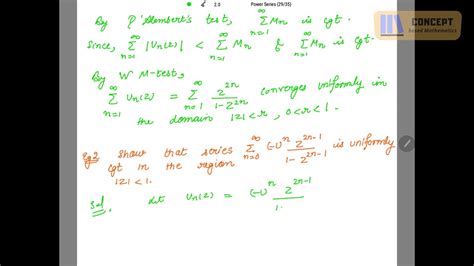 2.0 Power Series (29/35)
CONCEPT
Based Mathematics
By D'Alembert's test, \sum_{n=1}^{\infty} M_n is cgt.
Since, \sum_{n=1}^{\infty} |U_n(z)| < \sum_{n=1}^{\infty} M_n & \sum_{n=1}^{\infty} M_n is cgt.
By W M-test,
\sum_{n=1}^{\infty} U_n(z) = \sum_{n=1}^{\infty} \frac{z^{2n}}{1-z^{2n}} converges uniformly in
the domain |z|<r, 0<r<1.
Eg2. Show that series \sum_{n=0}^{\infty} \frac{(-1)^n z^{2n-1}}{1-z^{2n-1}} is uniformly
cgt in the region
|z|<1.
Sol. Let U_n(z) = \frac{(-1)^n z^{2n-1}}{1}